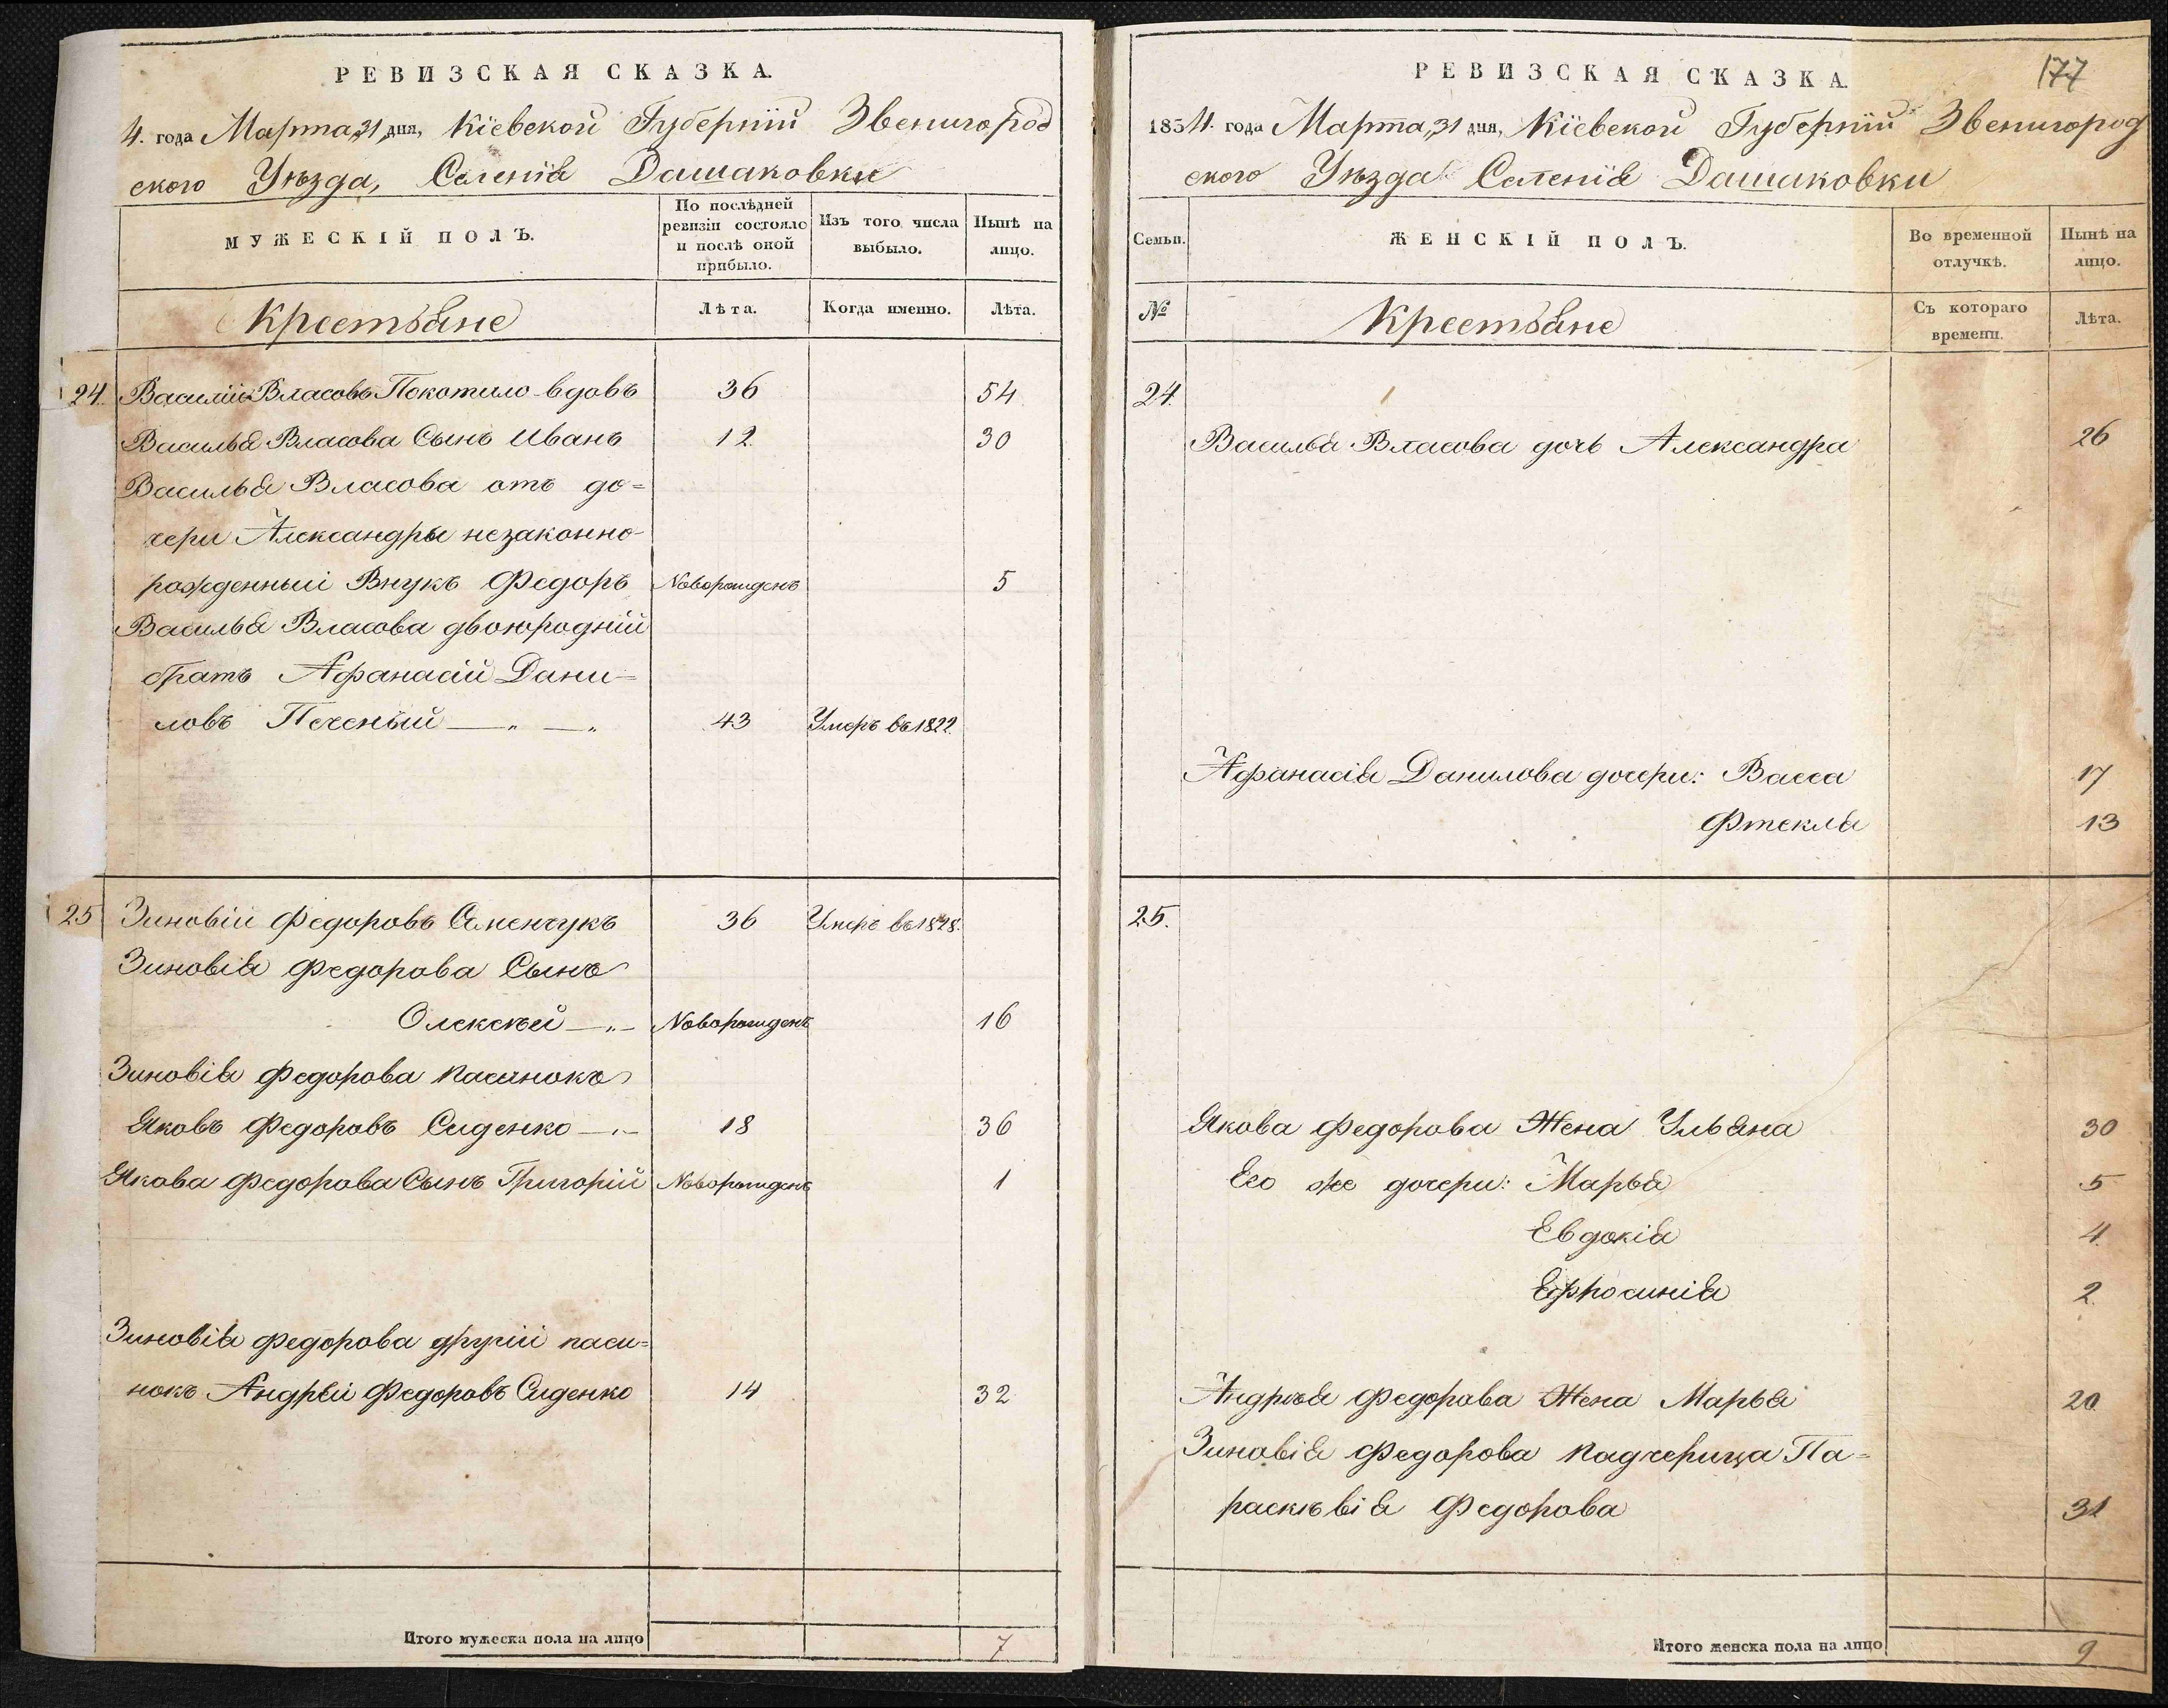 РЕВИЗСКАЯ СКАЗКА.
4. года Марта 31 дня, Кіевской Губерніи Звенигород
ского Уѣзда, Селенія Дашаковки
МУЖЕСКІЙ ПОЛЪ.
По послѣдней ревизіи состояло и послѣ оной прибыло.
Изъ того числа выбыло.
Нынѣ на лицо.
Крестьяне
Лѣта.
Когда именно.
Лѣта.
24. Василій Власовъ Покотило вдовъ 36 54
Василья Власова Сынъ Иванъ 12 30
Василья Власова отъ до=
чери Александры незаконно-
рожденный Внукъ Федоръ Новорожденъ 5
Василья Власова двоюродній
братъ Афанасій Дани=
ловъ Печеный —„—„ 43 Умеръ въ 1822.
25 Зиновій Федоровъ Семенчукъ 36 Умеръ въ 1828.
Зиновія Федорова Сынъ
Олексѣй —„— Новорожденъ 16
Зиновія Федорова пасинокъ
Яковъ Федоровъ Сиденко —„— 18 36
Якова Федорова Сынъ Григорій Новорожденъ 1
Зиновія Федорова другій паси=
нокъ Андрей Федоровъ Сиденко 14 32
Итого мужеска пола на лицо 7
177
РЕВИЗСКАЯ СКАЗКА.
1854. года Марта 31 дня, Кіевской Губерніи Звенигород
ского Уѣзда Селенія Дашаковки
Семьи.
ЖЕНСКІЙ ПОЛЪ.
Во временной отлучкѣ.
Нынѣ на лицо.
№
Крестьяне
Съ котораго времени.
Лѣта.
24.
Василья Власова дочь Александра 26
Афанасія Данилова дочери: Васса 17
Фтекля 13
25.
Якова Федорова Жена Ульяна 30
Его же дочери: Марья 5
Евдокія 4.
Ефросинія 2.
Андрѣя Федорова Жена Марья 20.
Зиновія Федорова падчерица Па=
раскѣвія Федорова 31
Итого женска пола на лицо 9